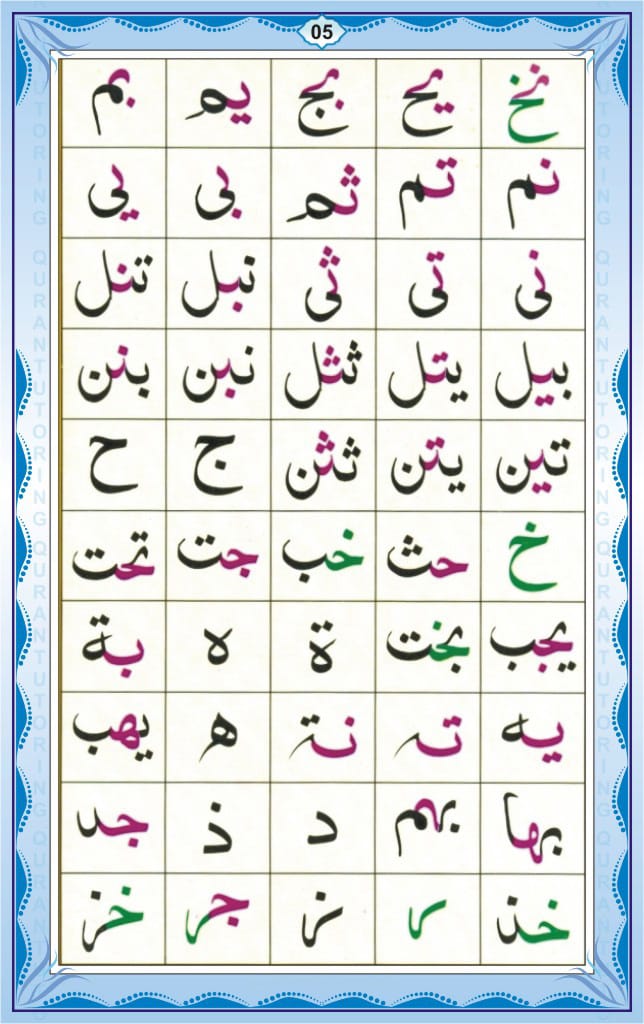 05
نخ يح بج يم بم
نم تم ثم بى يى
نى تى ثى نبل تنل
بيل يتل ثثل نبن بنن
تين يتن ثثن ج ح
خ حث خب جت تحت
يجب بخت ة ه بة
يه ته نة ه يهب
بها بهم د ذ جد
خذ ر ز جر خز